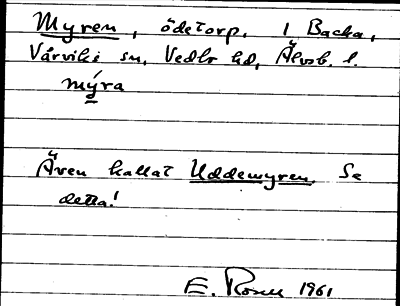 Myren, ödetorp, i Backa,
Vårviks sn, Vedbo hd, Älvsb. l.
mýra
Även kallat Uddemyren. Se
detta!
E. Rosell 1961